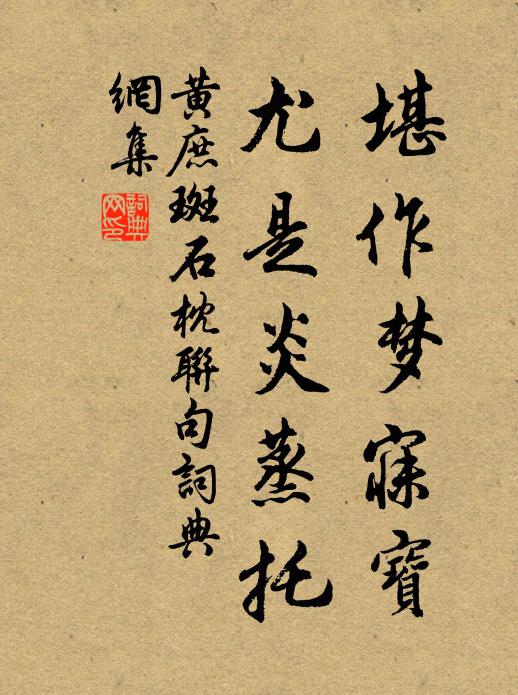 堪作梦寐寶
尤是炎蒸托
黄庶斑石枕聯句詞典
網集
詞典
网印